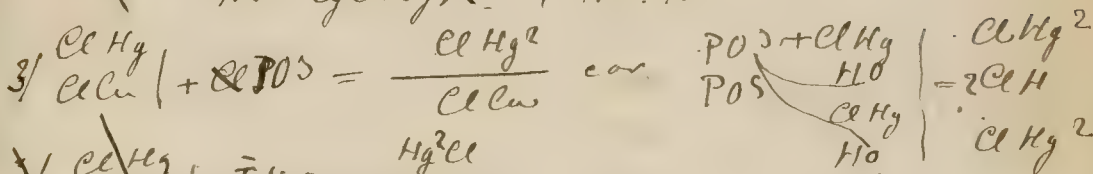 3/ ClHg
ClCu | + PO³ = ClHg² / ClCu car PO³ + ClHg | ClHg²
HO
PO³ = 2ClH
ClHg
HO | ClHg²
ClHg Hg²Cl